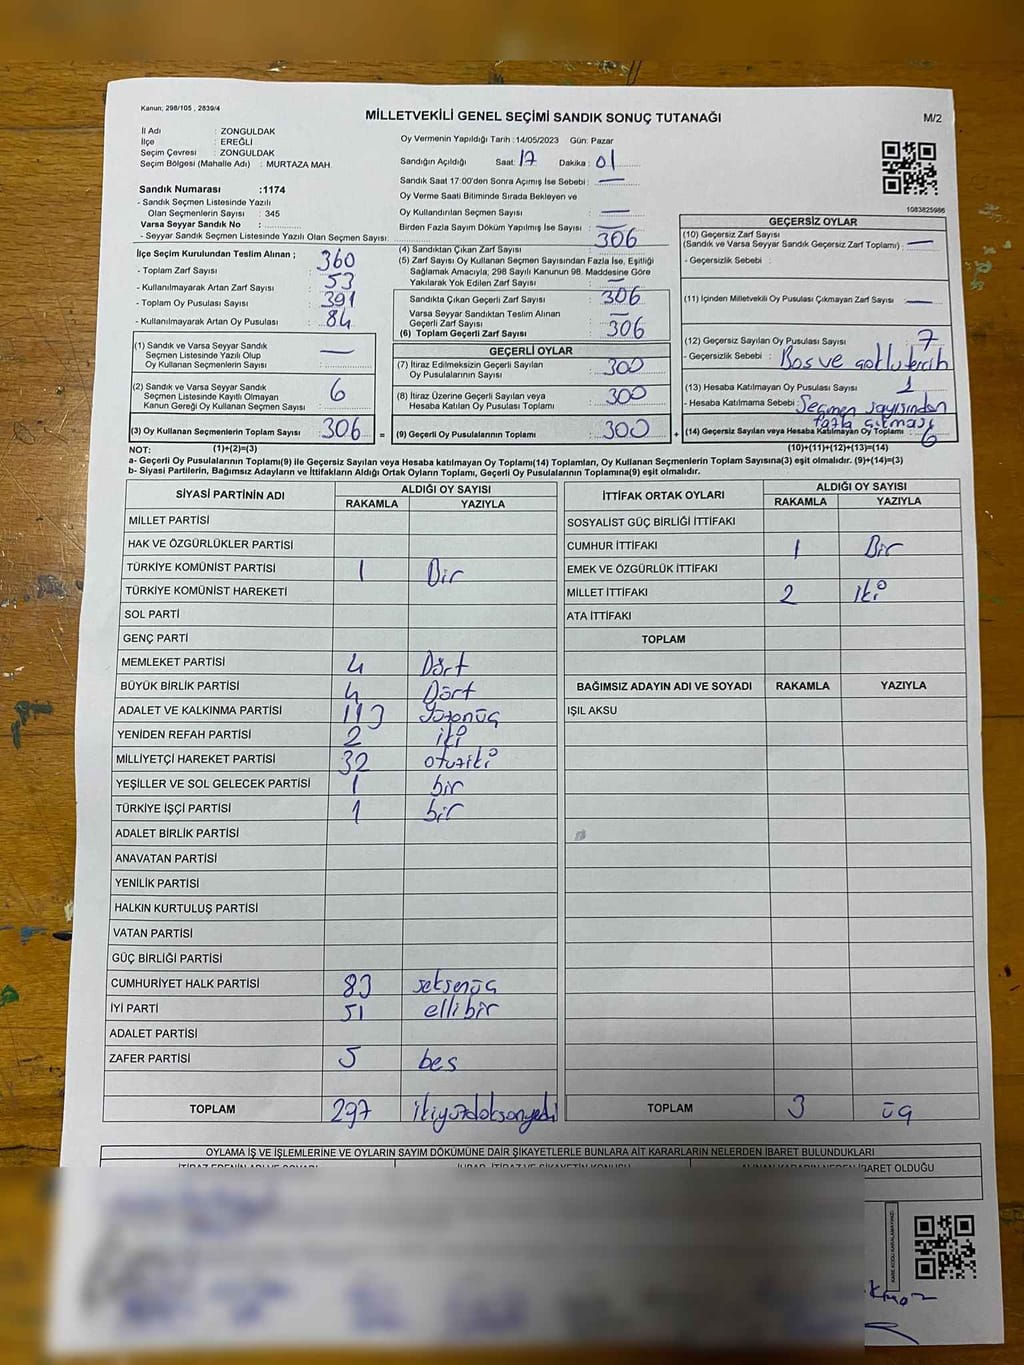 Kanun; 298/105 , 2839/4
MİLLETVEKİLİ GENEL SEÇİMİ SANDIK SONUÇ TUTANAĞI
M/2
İl Adı : ZONGULDAK
İlçe : EREĞLİ
Seçim Çevresi : ZONGULDAK
Seçim Bölgesi (Mahalle Adı) : MURTAZA MAH.
Sandık Numarası :1174
- Sandık Seçmen Listesinde Yazılı
Olan Seçmenlerin Sayısı : 345
Varsa Seyyar Sandık No :
- Seyyar Sandık Seçmen Listesinde Yazılı Olan Seçmen Sayısı:
Oy Vermenin Yapıldığı Tarih :14/05/2023 Gün: Pazar
Sandığın Açıldığı Saat: 17 Dakika : 01
Sandık Saat 17:00'den Sonra Açımış İse Sebebi : —
Oy Verme Saati Bitiminde Sırada Bekleyen ve
Oy Kullandırılan Seçmen Sayısı : —
Birden Fazla Sayım Döküm Yapılmış İse Sayısı : —
1083825986
İlçe Seçim Kurulundan Teslim Alınan ;
- Toplam Zarf Sayısı : 360
- Kullanılmayarak Artan Zarf Sayısı : 53
- Toplam Oy Pusulası Sayısı : 391
- Kullanılmayarak Artan Oy Pusulası : 84
(1) Sandık ve Varsa Seyyar Sandık
Seçmen Listesinde Yazılı Olup
Oy Kullanan Seçmenlerin Sayısı : —
(2) Sandık ve Varsa Seyyar Sandık
Seçmen Listesinde Kayıtlı Olmayan
Kanun Gereği Oy Kullanan Seçmen Sayısı : 6
(3) Oy Kullanan Seçmenlerin Toplam Sayısı : 306 =
(4) Sandıktan Çıkan Zarf Sayısı : 306
(5) Zarf Sayısı Oy Kullanan Seçmen Sayısından Fazla İse, Eşitliği
Sağlamak Amacıyla; 298 Sayılı Kanunun 98. Maddesine Göre
Yakılarak Yok Edilen Zarf Sayısı : —
Sandıkta Çıkan Geçerli Zarf Sayısı : 306
Varsa Seyyar Sandıktan Teslim Alınan
Geçerli Zarf Sayısı : —
(6) Toplam Geçerli Zarf Sayısı : 306
GEÇERLİ OYLAR
(7) İtiraz Edilmeksizin Geçerli Sayılan
Oy Pusulalarının Sayısı : 300
(8) İtiraz Üzerine Geçerli Sayılan veya
Hesaba Katılan Oy Pusulası Toplamı : 300
(9) Geçerli Oy Pusulalarının Toplamı : 300 +
GEÇERSİZ OYLAR
(10) Geçersiz Zarf Sayısı
(Sandık ve Varsa Seyyar Sandık Geçersiz Zarf Toplamı) : —
- Geçersizlik Sebebi :
(11) İçinden Milletvekili Oy Pusulası Çıkmayan Zarf Sayısı : —
(12) Geçersiz Sayılan Oy Pusulası Sayısı : 7
- Geçersizlik Sebebi : Boş ve çoklu tercih
(13) Hesaba Katılmayan Oy Pusulası Sayısı : 1
- Hesaba Katılmama Sebebi : Seçmen sayısından
fazla çıkması
(14) Geçersiz Sayılan veya Hesaba Katılmayan Oy Toplamı : 6
NOT: (1)+(2)=(3) (10)+(11)+(12)+(13)=(14)
a- Geçerli Oy Pusulalarının Toplamı(9) ile Geçersiz Sayılan veya Hesaba katılmayan Oy Toplamı(14) Toplamları, Oy Kullanan Seçmenlerin Toplam Sayısına(3) eşit olmalıdır. (9)+(14)=(3)
b- Siyasi Partilerin, Bağımsız Adayların ve İttifakların Aldığı Ortak Oyların Toplamı, Geçerli Oy Pusulalarının Toplamına(9) eşit olmalıdır.
SİYASİ PARTİNİN ADI ALDIĞI OY SAYISI
RAKAMLA YAZIYLA
MİLLET PARTİSİ
HAK VE ÖZGÜRLÜKLER PARTİSİ
TÜRKİYE KOMÜNİST PARTİSİ 1 Bir
TÜRKİYE KOMÜNİST HAREKETİ
SOL PARTİ
GENÇ PARTİ
MEMLEKET PARTİSİ 4 Dört
BÜYÜK BİRLİK PARTİSİ 4 Dört
ADALET VE KALKINMA PARTİSİ 113 yüzonüç
YENİDEN REFAH PARTİSİ 2 iki
MİLLİYETÇİ HAREKET PARTİSİ 32 otuziki
YEŞİLLER VE SOL GELECEK PARTİSİ 1 bir
TÜRKİYE İŞÇİ PARTİSİ 1 bir
ADALET BİRLİK PARTİSİ
ANAVATAN PARTİSİ
YENİLİK PARTİSİ
HALKIN KURTULUŞ PARTİSİ
VATAN PARTİSİ
GÜÇ BİRLİĞİ PARTİSİ
CUMHURİYET HALK PARTİSİ 83 seksenüç
İYİ PARTİ 51 ellibir
ADALET PARTİSİ
ZAFER PARTİSİ 5 beş
TOPLAM 297 ikiyüzdoksanyedi
İTTİFAK ORTAK OYLARI ALDIĞI OY SAYISI
RAKAMLA YAZIYLA
SOSYALİST GÜÇ BİRLİĞİ İTTİFAKI
CUMHUR İTTİFAKI 1 Bir
EMEK VE ÖZGÜRLÜK İTTİFAKI
MİLLET İTTİFAKI 2 İki
ATA İTTİFAKI
TOPLAM
BAĞIMSIZ ADAYIN ADI VE SOYADI RAKAMLA YAZIYLA
IŞIL AKSU
TOPLAM 3 üç
OYLAMA İŞ VE İŞLEMLERİNE VE OYLARIN SAYIM DÖKÜMÜNE DAİR ŞİKAYETLERLE BUNLARA AİT KARARLARIN NELERDEN İBARET BULUNDUKLARI
İTİRAZ EDENİN ADI VE SOYADI İHBAR, İTİRAZ VE ŞİKAYETİN KONUSU ALINAN KARARIN NEDEN İBARET OLDUĞU
KARE KODU KARALAMAYINIZ!